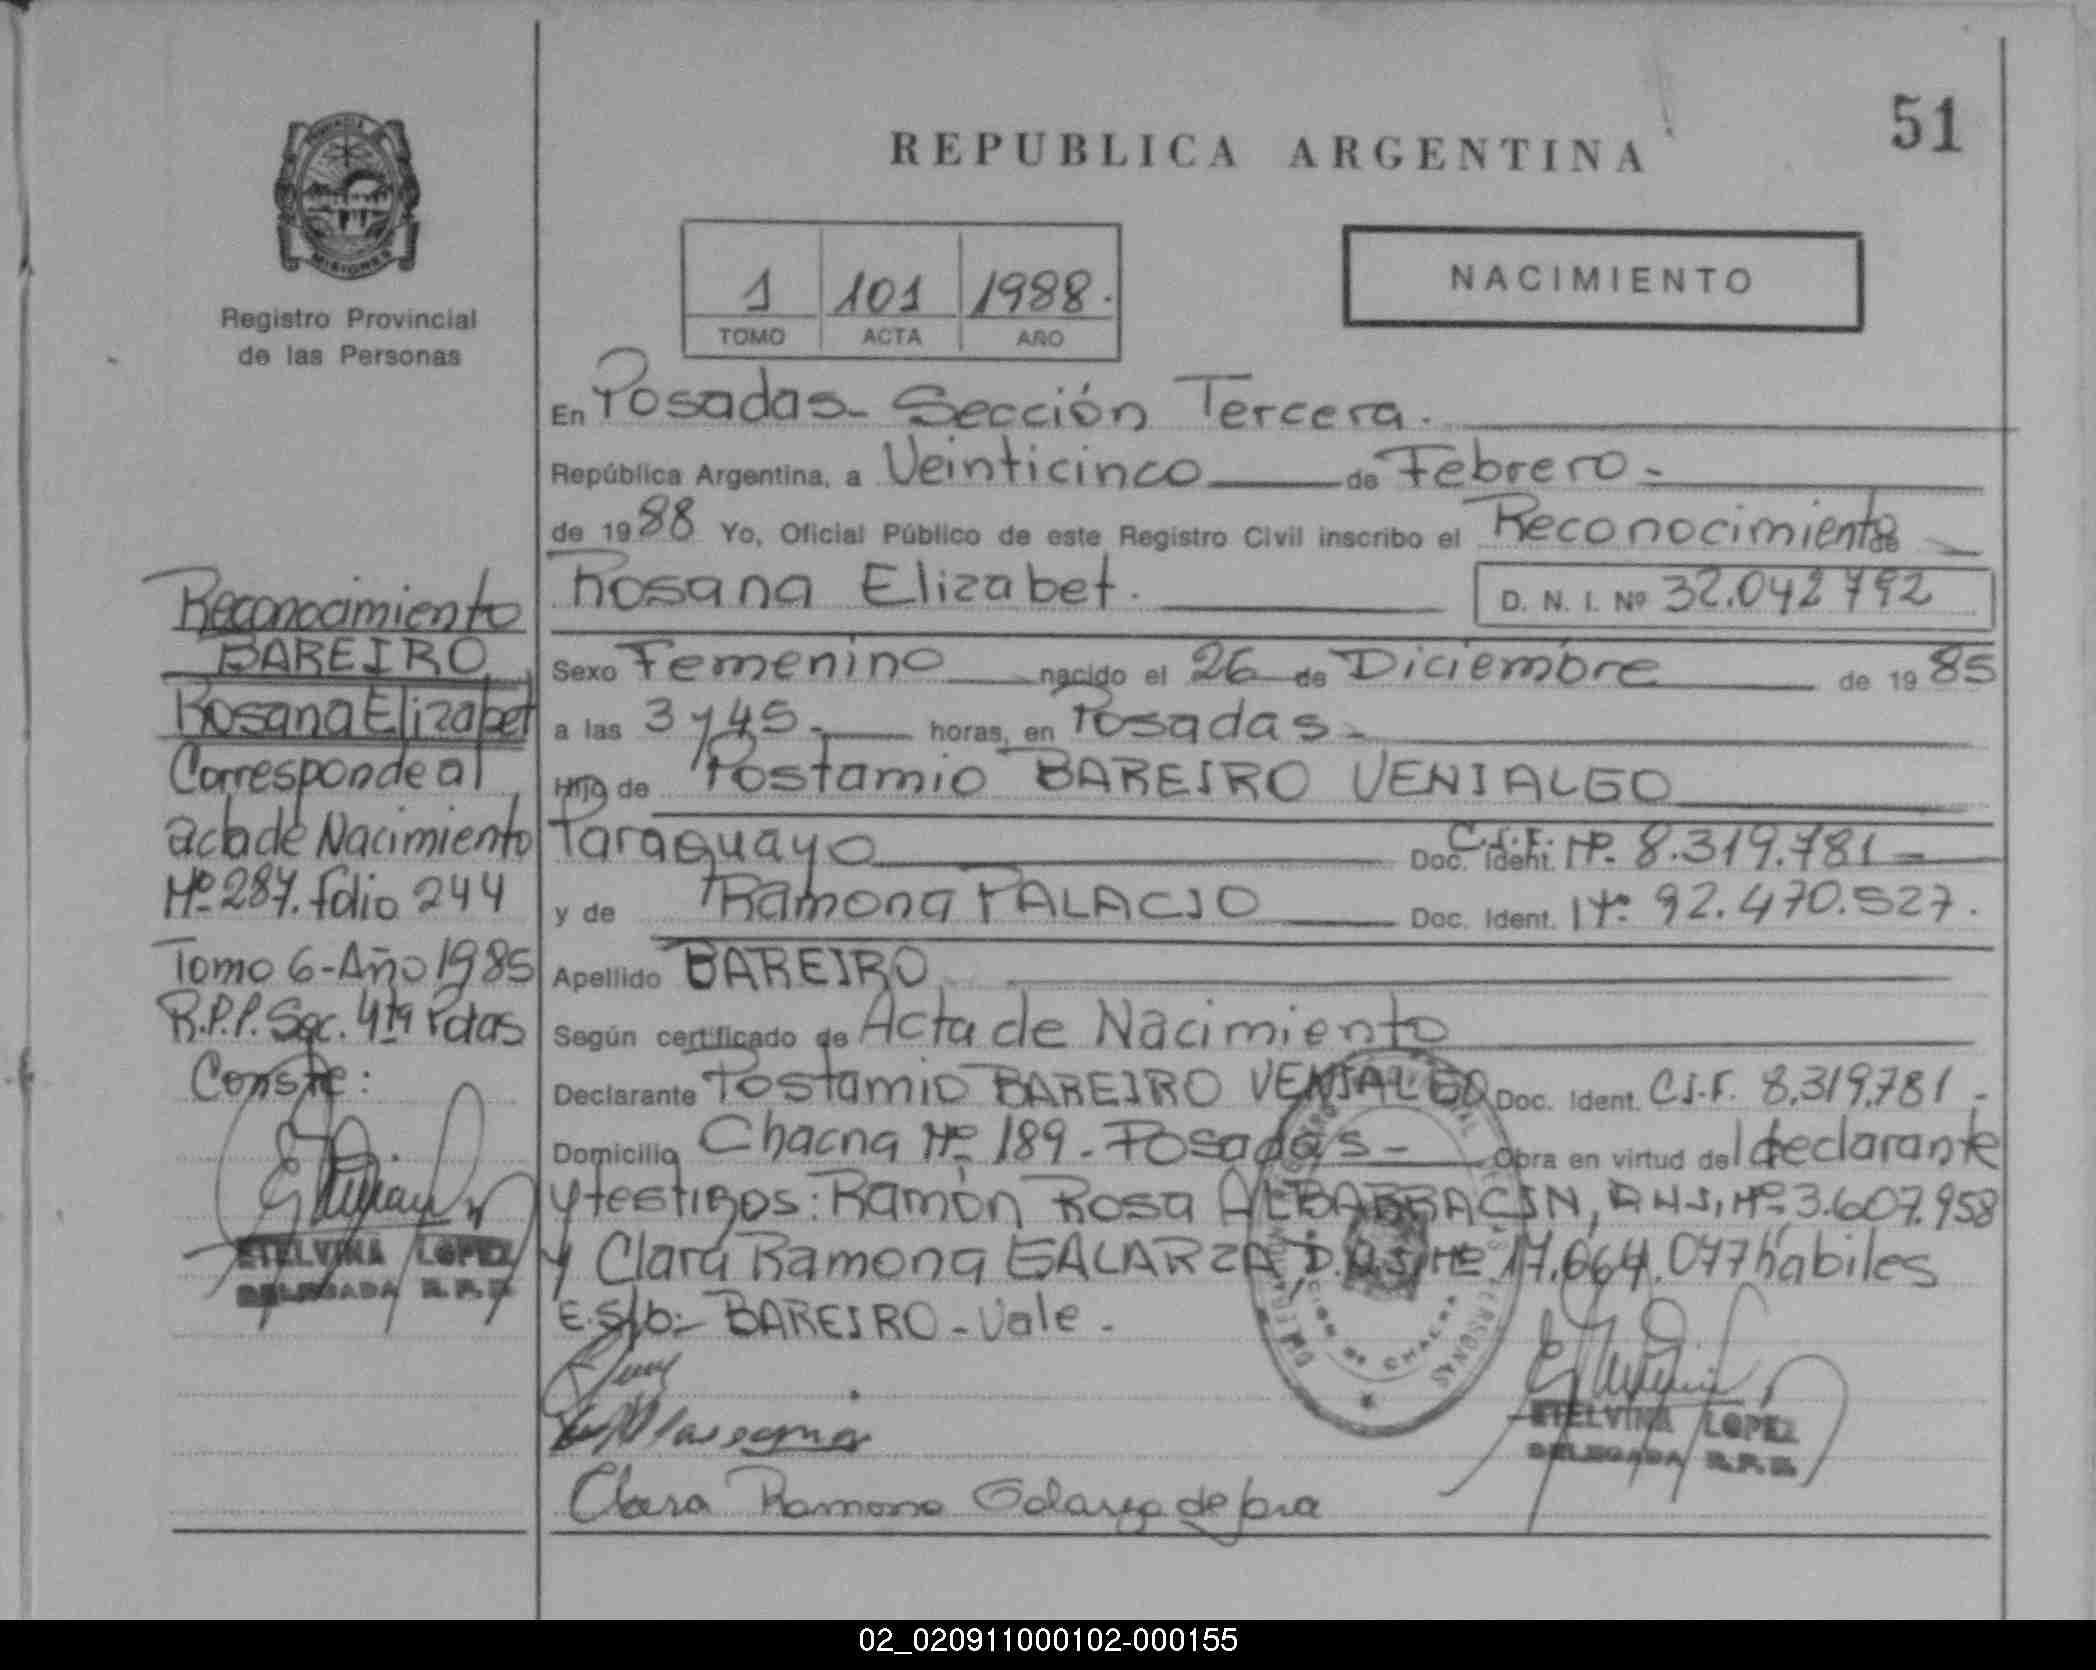 51
REPUBLICA ARGENTINA
MISIONES
Registro Provincial
de las Personas
1 101 1988.
TOMO ACTA AÑO
NACIMIENTO
En Posadas - Sección Tercera.
República Argentina, a Veinticinco de Febrero -
de 1988 Yo, Oficial Público de este Registro Civil inscribo el Reconocimiento de
Rosana Elizabet. D. N. I. Nº 32.042792
Sexo Femenino nacido el 26 de Diciembre de 1985
a las 3 y 45 - horas, en Posadas -
Hijo de Postamio BAREIRO VENIALGO
Paraguayo C.I.F. Doc. Ident. Nº 8.319.781 -
y de Ramona PALACIO Doc. Ident. Nº 92.470.527.
Apellido BAREIRO
Según certificado de Acta de Nacimiento
Declarante Postamio BAREIRO VENIALGO Doc. Ident. C.I.F. 8.319.781 -
Domicilio Chacra Nº 189 - Posadas - Obra en virtud del declarante
y testigos: Ramón Rosa ALBARRACIN, D.N.I, Nº 3.607.958
y Clara Ramona GALARZA, D.N.I, Nº 17.664.077 hábiles
E.S/b:- BAREIRO - Vale -
Clara Ramona Galarza de
ETELVINA LOPEZ
DELEGADA R.P.P.
Reconocimiento
BAREIRO
Rosana Elizabet
Corresponde al
acta de Nacimiento
Nº 287. folio 244
Tomo 6 - Año 1985
R.P.P. Sec. 4ta Pdas
Conste:
ETELVINA LOPEZ
DELEGADA R.P.P.
02_020911000102-000155